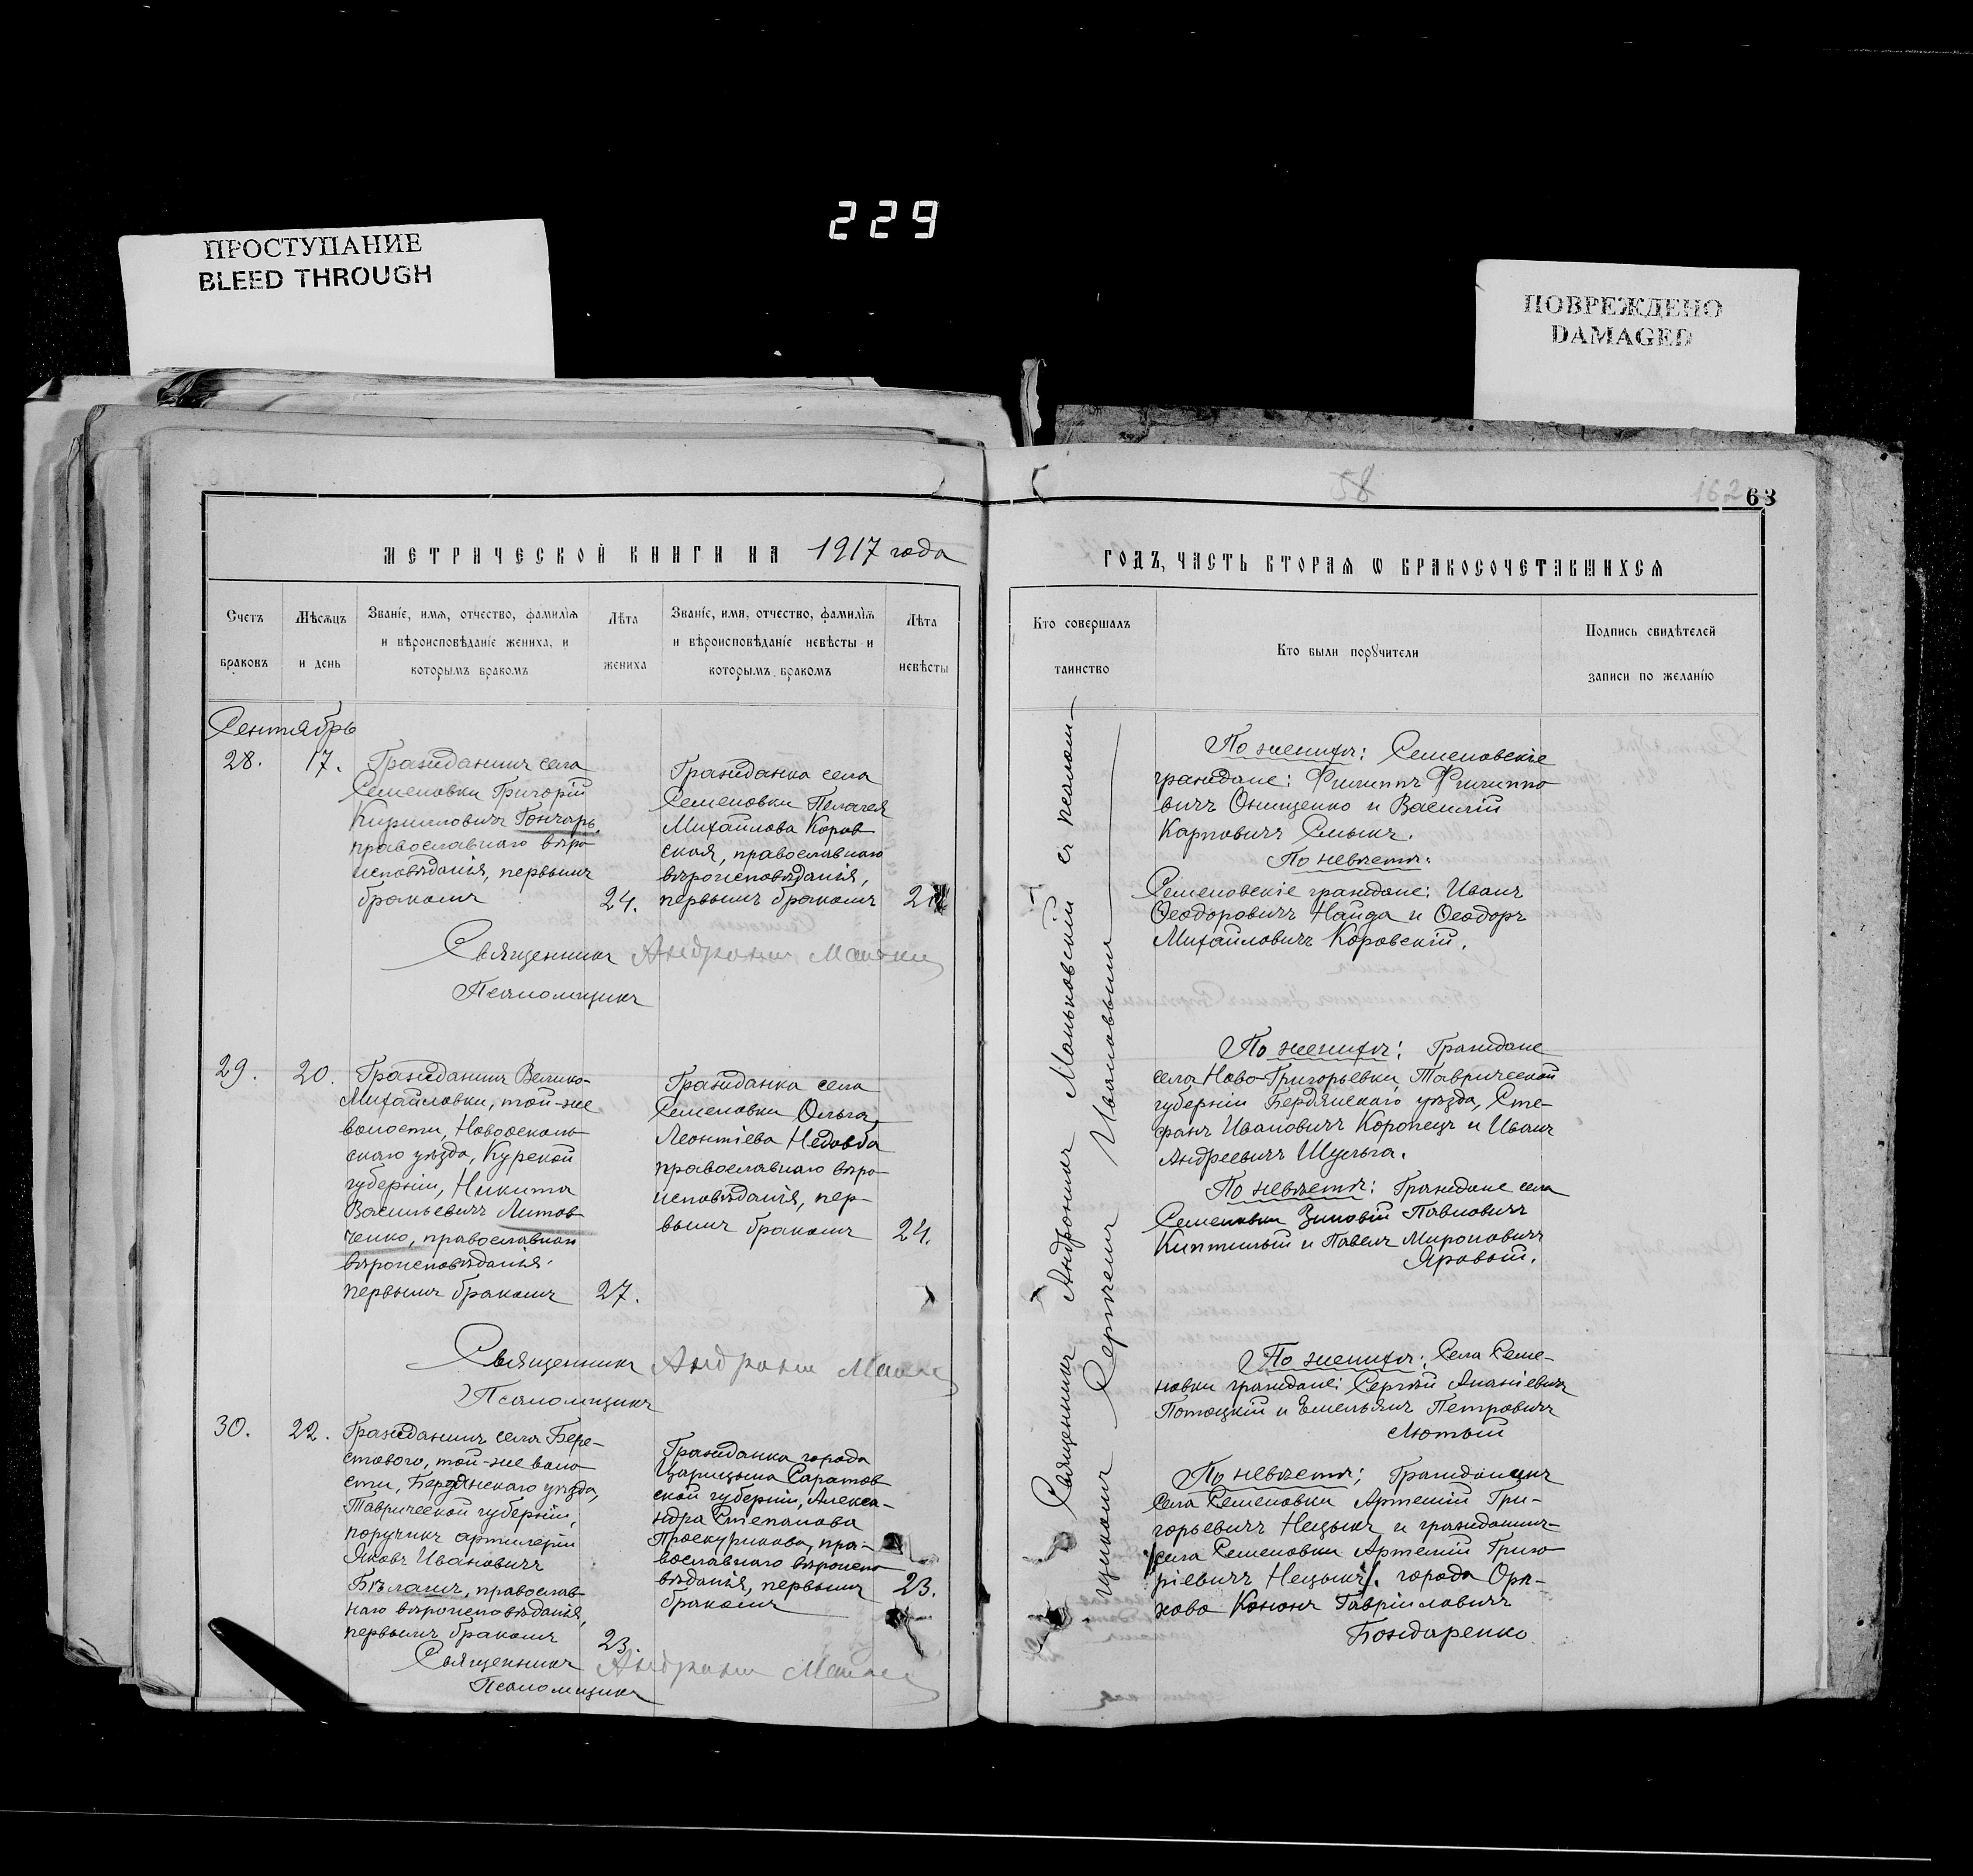 229
ПРОСТУПАНИЕ
BLEED THROUGH
ПОВРЕЖДЕНО
DAMAGED
58
162
63
МЕТРИЧЕСКОЙ КНИГИ НА 1917 года
ГОДЪ, ЧАСТЬ ВТОРАѦ Ѡ БРАКОСОЧЕТАВШИХСѦ
Счетъ
браковъ
Мѣсѧцъ
и день
Званіе, имѧ, отчество, фамилїѧ
и вѣроисповѣданіе жениха, и
которымъ бракомъ
Лѣта
жениха
Званіе, имѧ, отчество, фамилїѧ
и вѣроисповѣданіе невѣсты и
которымъ бракомъ
Лѣта
невѣсты
Кто совершалъ
таинство
Кто были порꙋчители
Подпись свидѣтелей
записи по желанію
Сентябрь
28.
17.
Гражданинъ села
Семеновки Григорій
Кирилловичъ Гончаръ,
православнаго вѣро
исповѣданія, первымъ
бракомъ
24.
Гражданка села
Семеновки Пелагея
Михайлова Коров
ская, православнаго
вѣроисповѣданія,
первымъ бракомъ
Священникъ Андроникъ
Псаломщикъ
29.
20.
Гражданинъ Велико-
Михайловки, той-же
волости, Новоосколь
скаго уѣзда, Курской
губерніи, Никита
Васильевичъ Литов
ченко, православнаго
вѣроисповѣданія.
первымъ бракомъ
27.
Гражданка села
Семеновки Ольга
Леонтіева Недовба
православнаго вѣро-
исповѣданія, пер-
вымъ бракомъ
24.
Священникъ Андроникъ
Псаломщикъ
30.
22.
Гражданинъ села Бере-
стового, той-же воло
сти, Бердянскаго уѣзда,
Таврической губерніи,
поручикъ артилеріи
Яковъ Ивановичъ
Бѣланъ, православ
наго вѣроисповѣданія,
первымъ бракомъ
23.
Гражданка города
Царицына Саратов
ской губерніи, Алекса-
ндра Степанова
Проскурикова, пра-
вославнаго вѣроиспо
вѣданія, первымъ
бракомъ
23.
Священникъ Андроникъ
Псаломщикъ
Священникъ Андроникъ Маньковскій съ псалом-
щикомъ Сергѣемъ Ивановымъ
По женихѣ: Семеновскіе
граждане: Филиппъ Филиппо
вичъ Онищенко и Василій
Карповичъ Смыкъ.
По невѣстѣ:
Семеновскіе граждане: Иванъ
Ѳеодоровичъ Найда и Ѳеодоръ
Михайловичъ Коровскій.
По женихѣ: Граждане
села Ново-Григорьевки, Таврической
губерніи Бердянскаго уѣзда, Сте-
фанъ Ивановичъ Коропецъ и Иванъ
Андреевичъ Шульга.
По невѣстѣ: Граждане села
Семеновки Зиновій Павловичъ
Киптилый и Павелъ Мироновичъ
Яровый.
По женихѣ: Села Семе-
новки граждане: Сергѣй Ананіевичъ
Потоцкій и Емельянъ Петровичъ
Лютый
По невѣстѣ: Гражданинъ
села Семеновки Артемій Гри-
горьевичъ Нецыкъ и гражданинъ
/села Семеновки Артемій Григо
ріевичъ Нецыкъ/. города Орѣ-
хова Кононъ Гавріиловичъ
Бондаренко